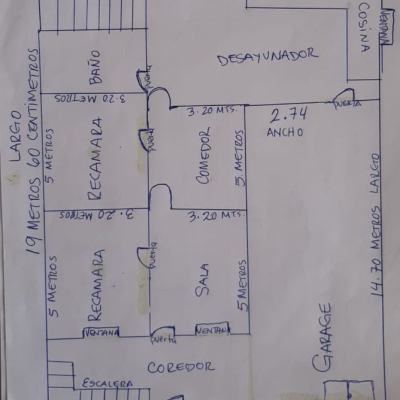 COSINA
VENTANA
DESAYUNADOR
BAÑO
puerta
LARGO
19 METROS 60 CENTIMETROS
3.20 METROS
3.20 MTS.
2.74
ANCHO
puerta
puerta
RECAMARA
5 METROS
COMEDOR
5 METROS
3.20 METROS
3.20 MTS.
puerta
RECAMARA
5 METROS
SALA
5 METROS
14.70 METROS LARGO
VENTANA
puerta
VENTANA
GARAGE
COREDOR
ESCALERA